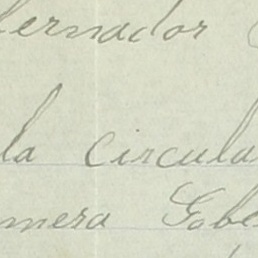 bernador
la circula
mera Gobe